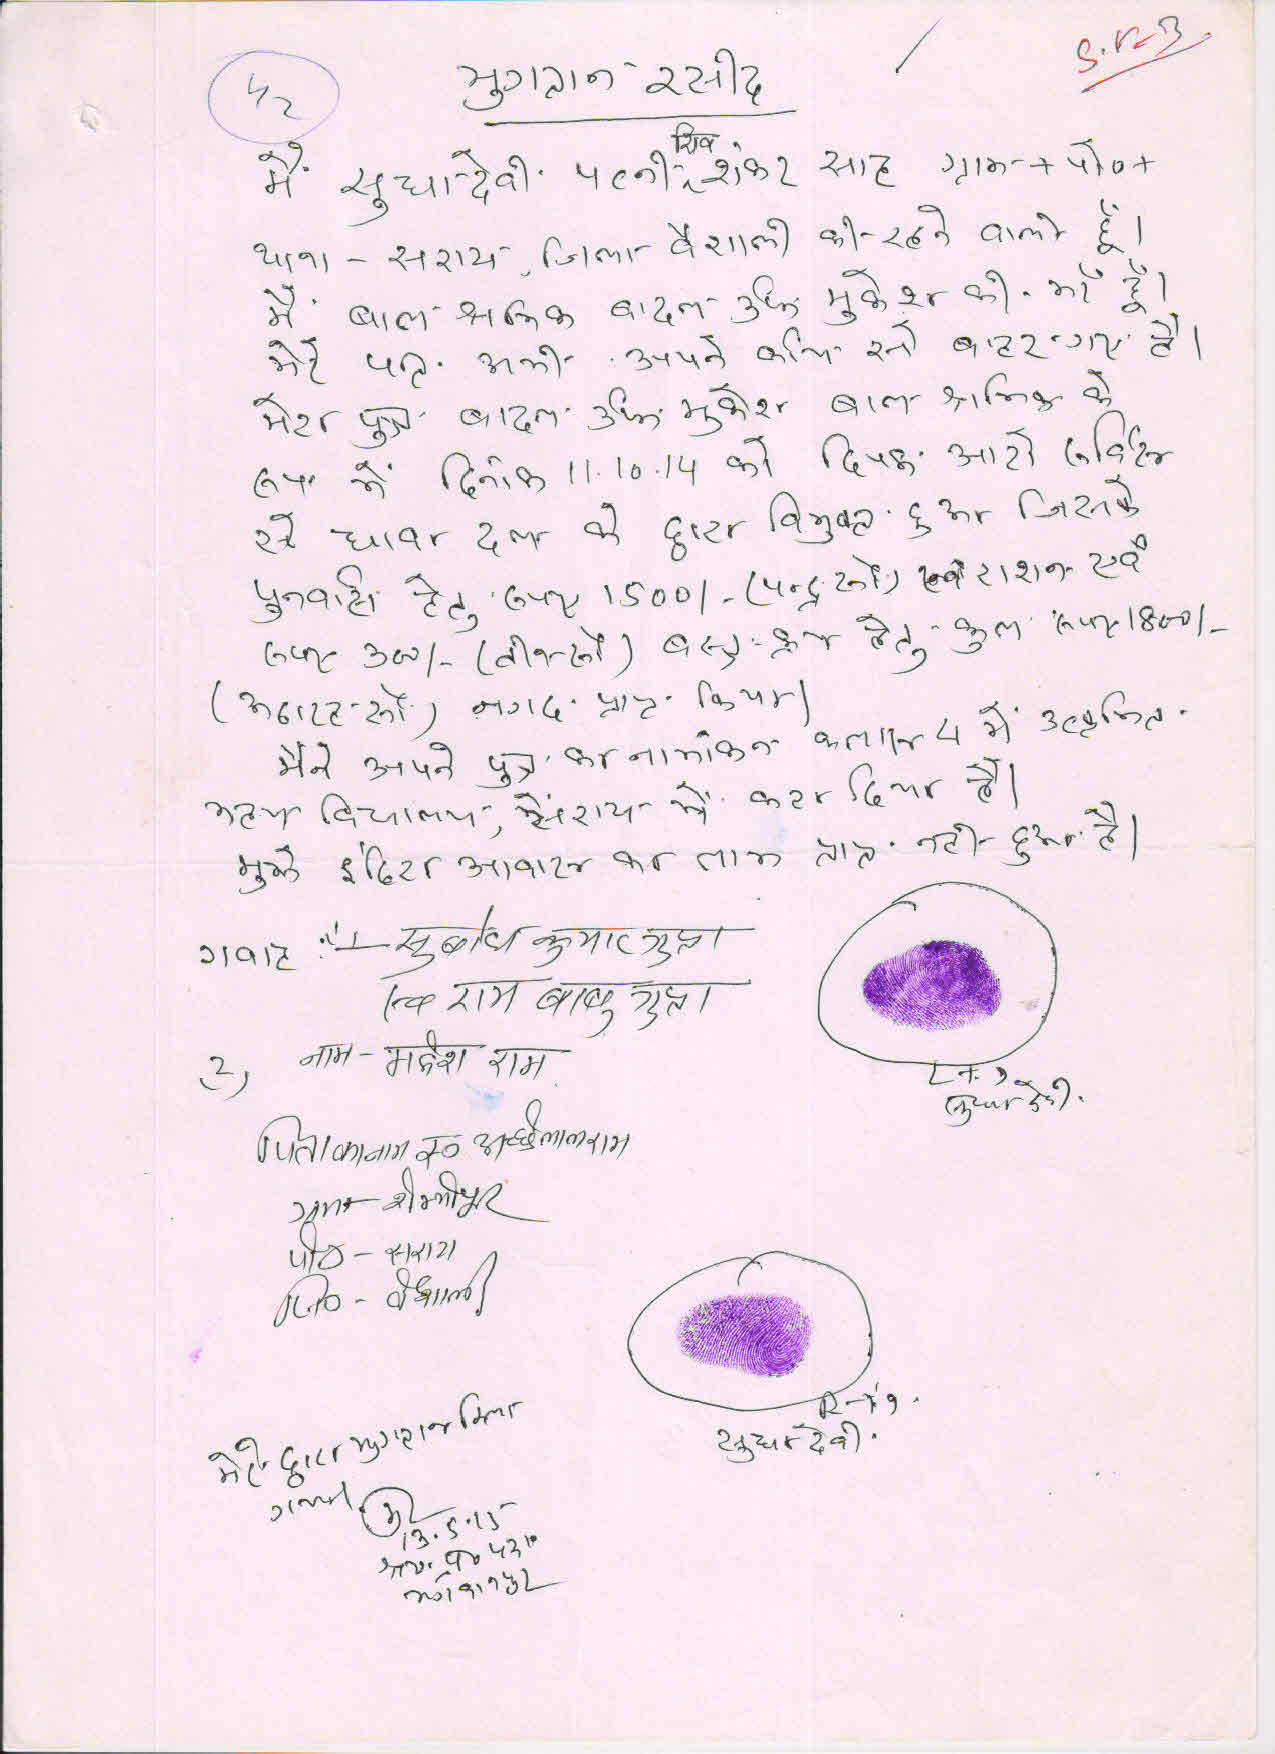 S.K-B
42
भुगतान रसीद
मैं सुधा देवी पत्नी शिव शंकर साह ग्राम + पो० +
थाना - सराय, जिला वैशाली की रहने वाली हूँ।
मैं बाल श्रमिक बादल उर्फ मुकेश की माँ हूँ।
मेरे पति अभी अपने काम से बाहर गए हैं।
मेरा पुत्र बादल उर्फ मुकेश बाल श्रमिक के
रूप में दिनांक 11.10.14 को दिपक आटो सर्विस
से धावा दल के द्वारा विमुक्त हुआ जिसके
पुनर्वास हेतु रूपए 1500/- (पन्द्रह सौ) राशन एवं
रूपए 300/- (तीन सौ) वस्त्र क्रय हेतु कुल रूपए 1800/-
(अठारह सौ) नगद प्राप्त किया।
मैंने अपने पुत्र का नामांकन कक्षा 4 में उत्क्रमित
मध्य विद्यालय, सराय में करा दिया है।
मुझे इंदिरा आवास का लाभ प्राप्त नहीं हुआ है।
गवाह :- 1 सुबोध कुमार गुप्ता
राम बाबु गुप्ता
2) नाम - महेश राम
L.T.I
सुधा देवी.
पिता का नाम स्व० अच्छेलाल राम
ग्राम -
पो० - सराय
जि० - वैशाली
R-T.I.
सुधा देवी.
मेरे द्वारा भुगतान किया
गया।
13.5.15
श्रम प्र० पदा०
भगवानपुर